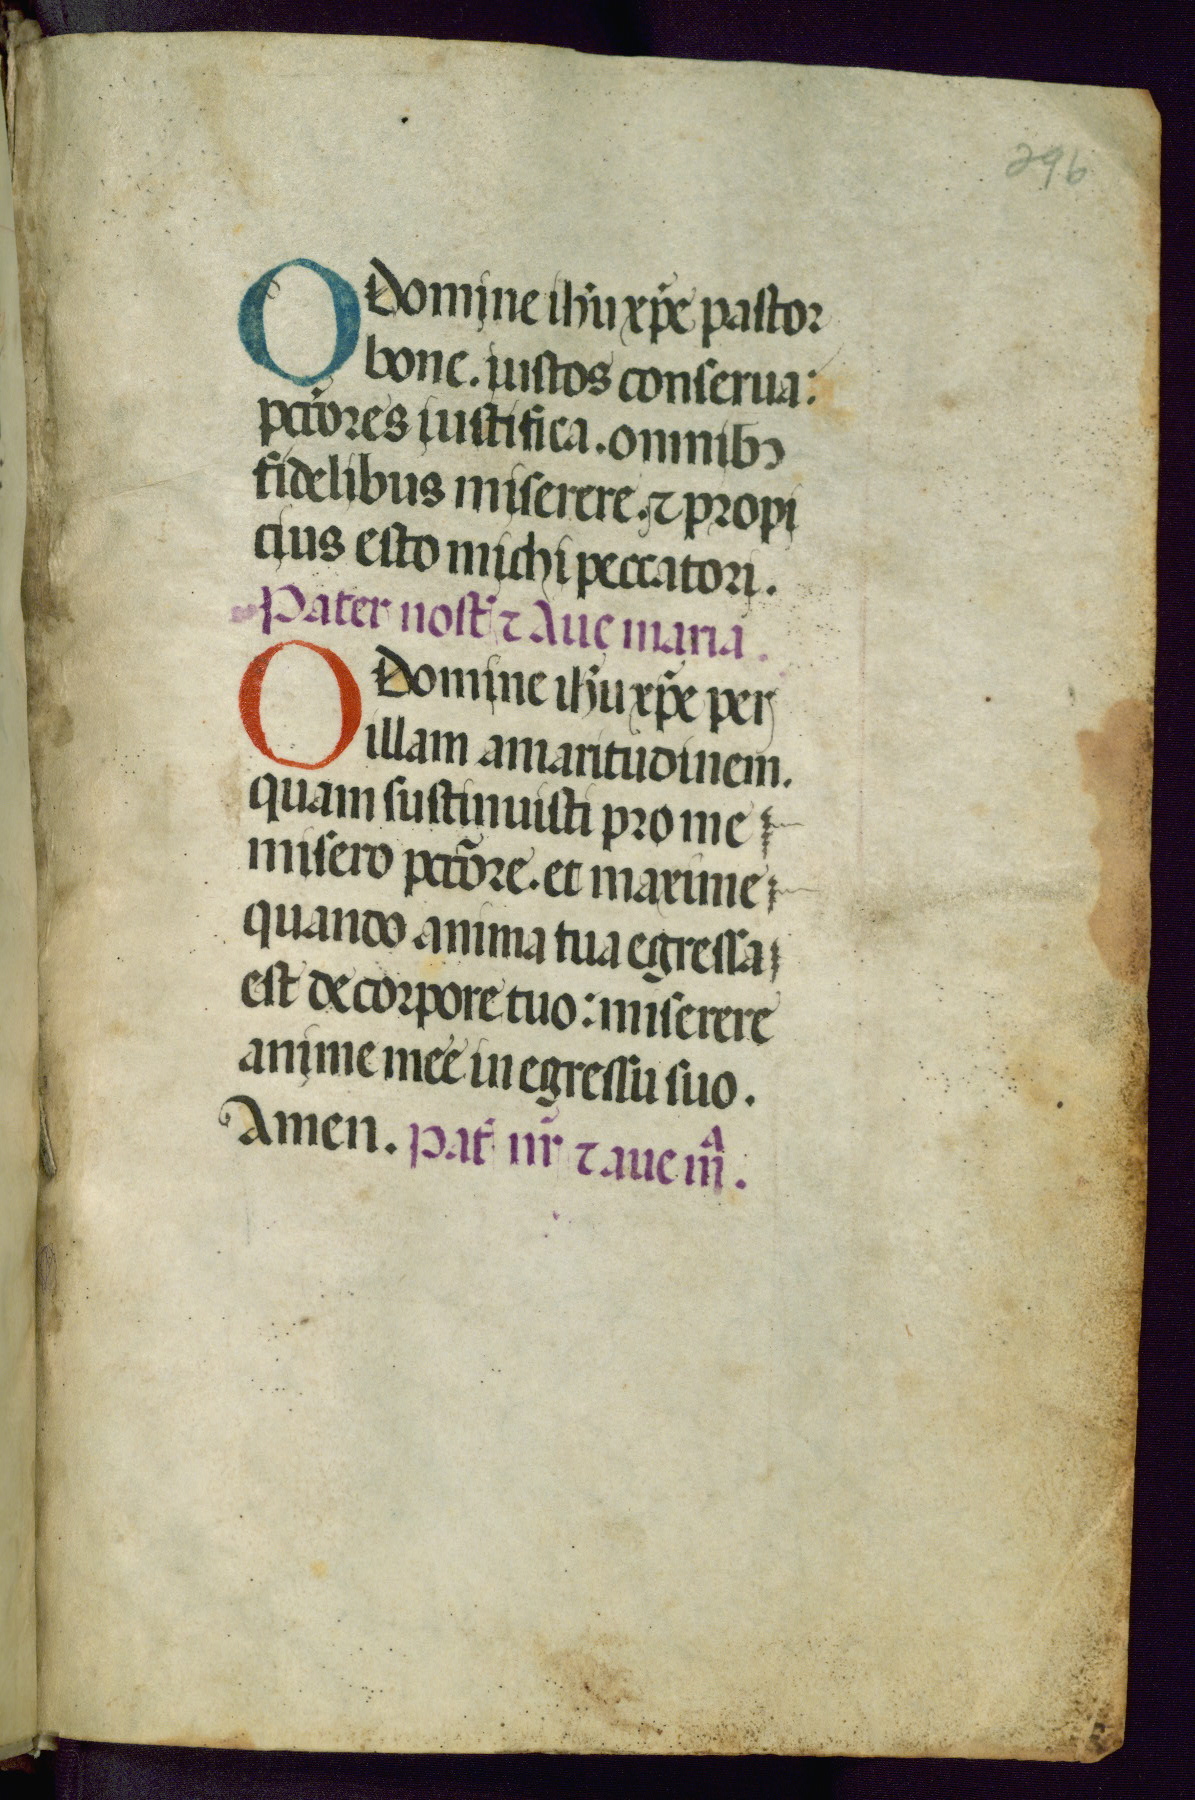 296
O Domine ihu xpe pastor
bone. iustos conserua:
pctores iustifica. omnibꝫ
fidelibus miserere. ⁊ propi
cius esto michi peccatori.
Pater nost ⁊ Aue maria.
O Domine ihu xpe per
illam amaritudinem.
quam sustinuisti pro me
misero pctore. et maxime
quando anima tua egressa
est de corpore tuo: miserere
anime mee in egressu suo.
Amen. Pat nr ⁊ aue mᵃ.